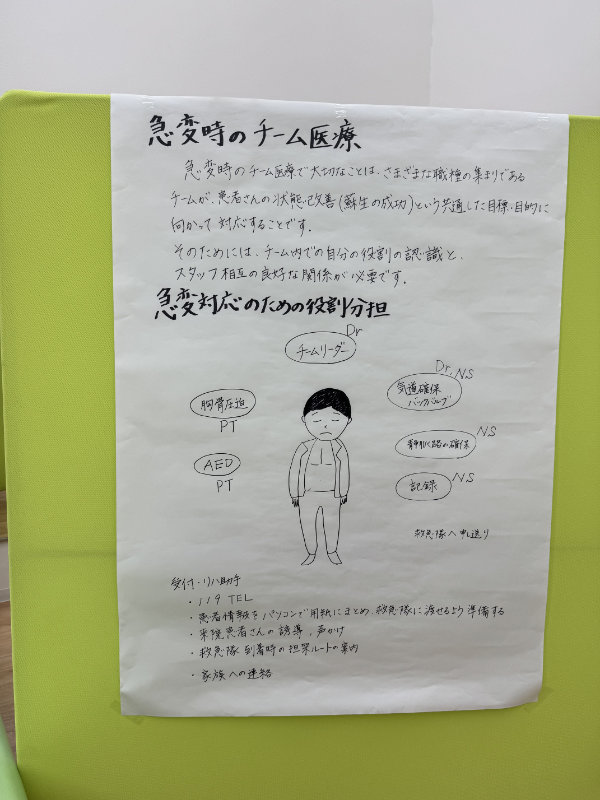 急変時のチーム医療
急変時のチーム医療で大切なことは、さまざまな職種の集まりである
チームが、患者さんの状態・改善(蘇生の成功)という共通した目標・目的に
向かって対応することです。
そのためには、チーム内での自分の役割の認識と、
スタッフ相互の良好な関係が必要です。
急変対応のための役割分担
Dr
チームリーダー
Dr, NS
気道確保
バックバルブ
胸骨圧迫
PT
NS
静脈路の確保
AED
PT
NS
記録
救急隊へ申し送り
受付・リハ助手
・119 TEL
・患者情報をパソコンで用紙にまとめ、救急隊に渡せるよう準備する
・来院患者さんの誘導、声かけ
・救急隊到着時の担架ルートの案内
・家族への連絡